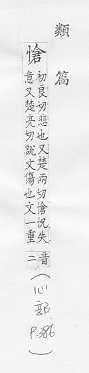 類篇
愴
初良切悲也又楚兩切愴怳失
意又楚亮切說文傷也文一重
音
二
(心部 P.386)